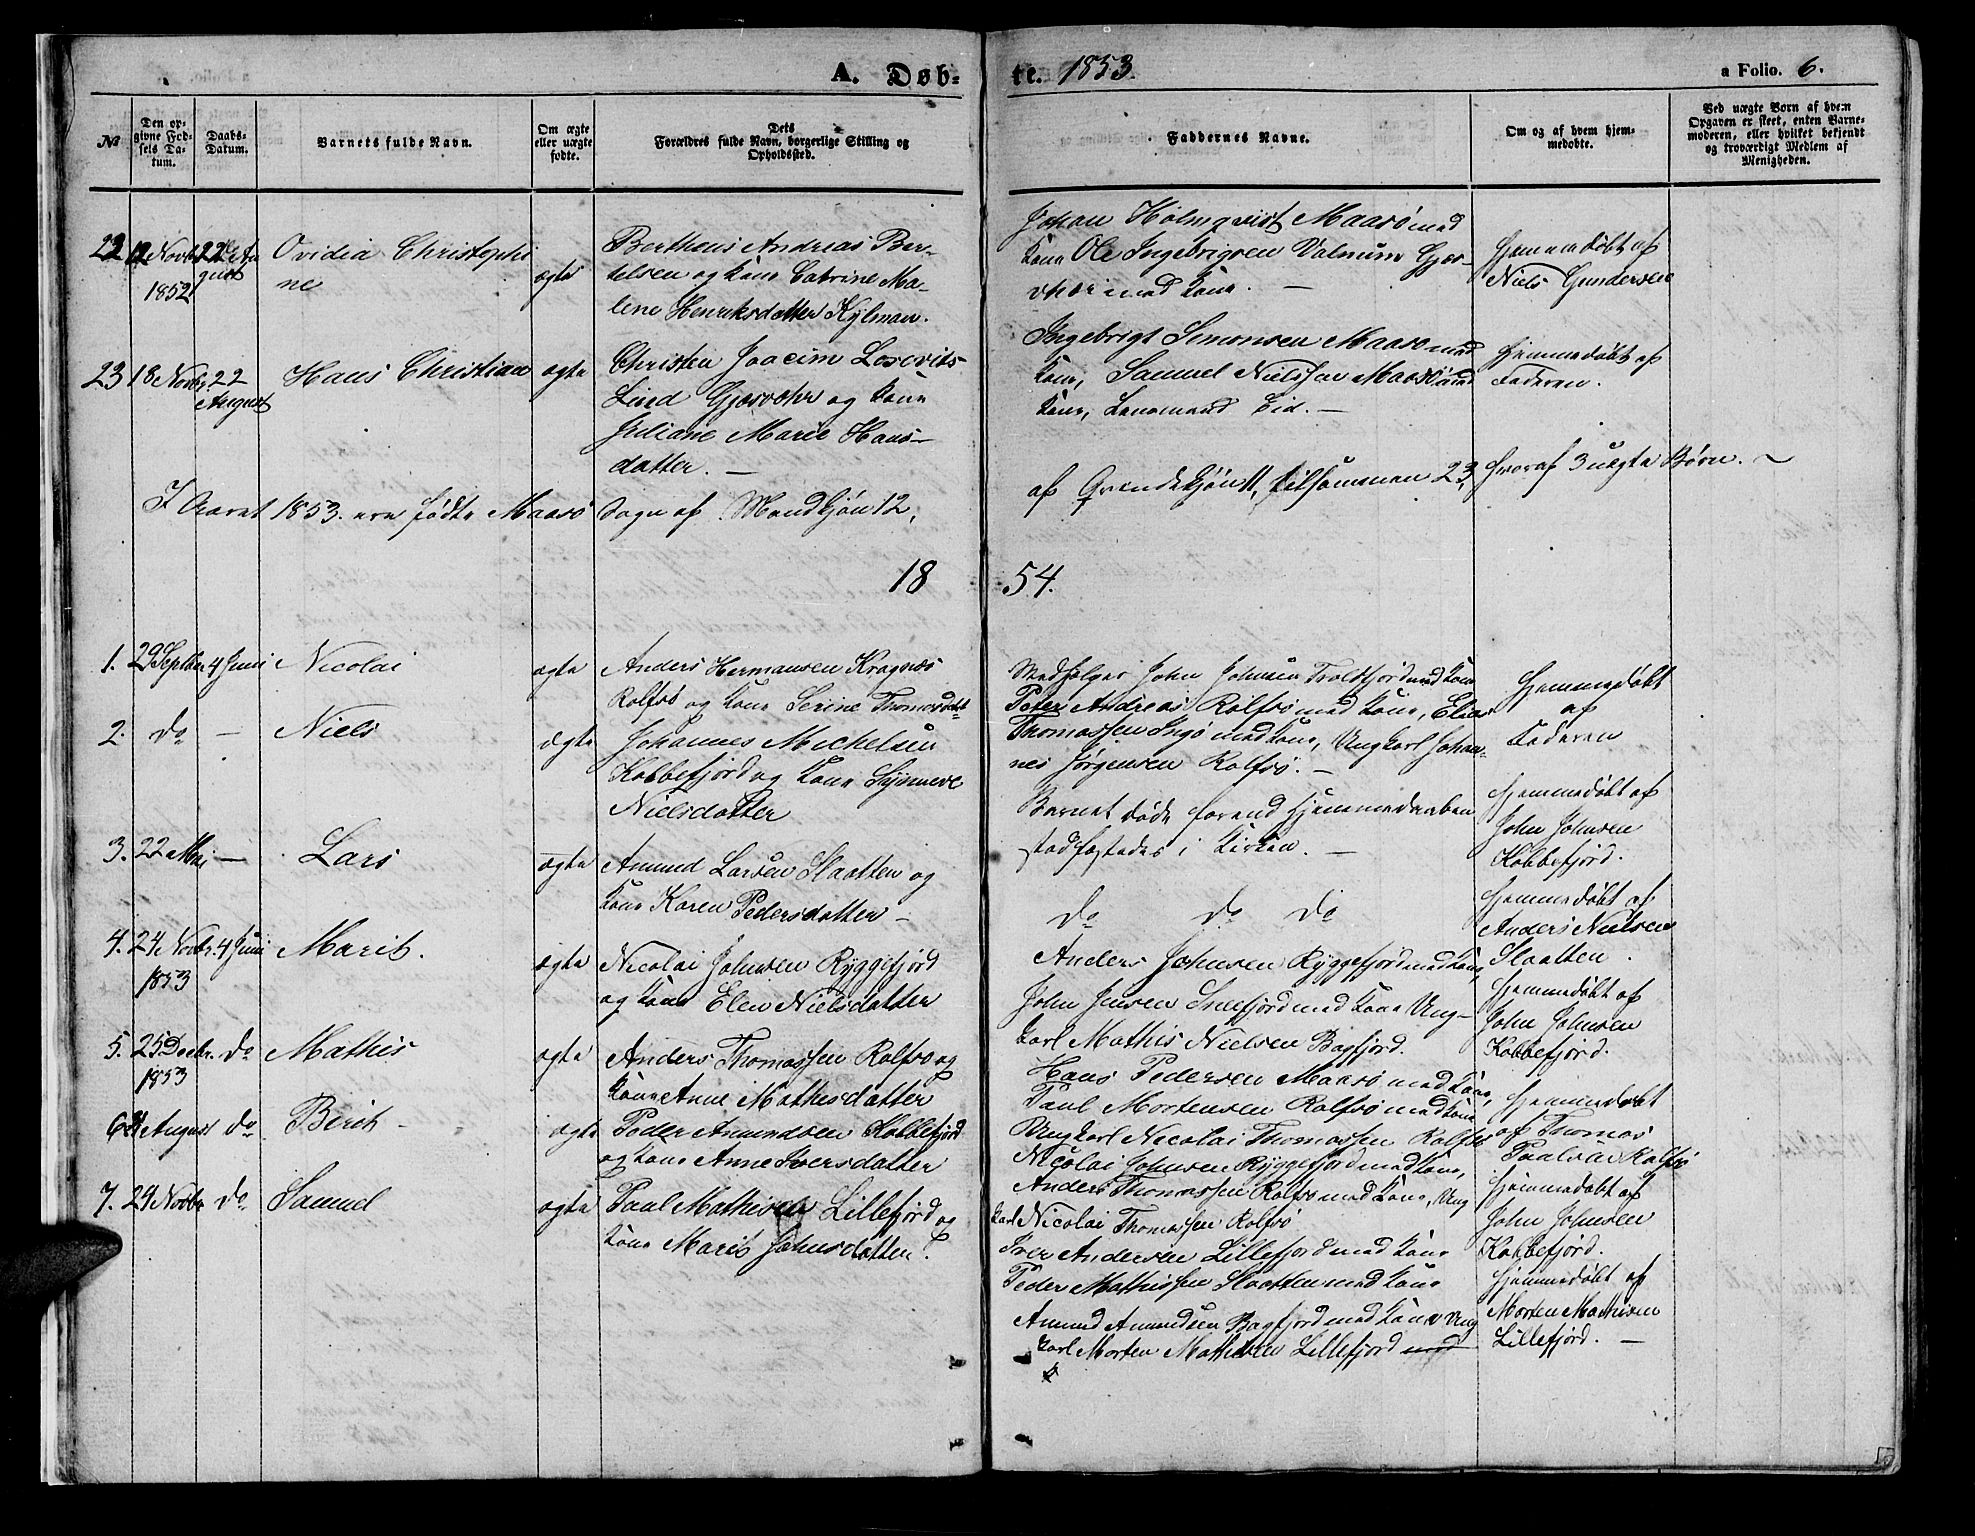 A. Døb-
te. 1853.
a Folio. 6.
№
Den op-
givne Fød-
sels Da-
tum.
Daabs-
Datum.
Barnets fulde Navn.
Om ægte
eller uægte
fødte.
Dets
Forældres fulde Navn, borgerlige Stilling og
Opholdssted.
Faddernes Navne.
Om og af hvem hjem-
medøbte.
Ved uægte Børn af hvem
Opgaven er skeet, enten Barne-
moderen, eller hvilket bekjendt
og troværdigt Medlem af
Menigheden.
22
12 Novbr
1852
22de Au
gust
Ovidia Christophi
ne
ægte
Bertheus Andreas Ber-
telsen og Kone Catrine Ma-
lene Henriksdatter Kylman.
Johan Holmqvist Maasø med
Kone Ole Ingebrigsen Valnum Gjes-
vær med Kone. —
Hjemmedøbt af
Niels Gundersen
23
18 Novbr
22
August
Hans Christian
ægte
Christen Joacim
Lind Gjesvær og Kone
Juliane Marie Hans-
datter. —
Ingebrigt Simonsen Maasø med
Kone, Samuel Nielssen Maasø med
Kone, Lensmand Eid. —
Hjemmedøbt af
Faderen.
I Aaret 1853. ere fødte Maasø Sogn af Mandkjøn 12,
af Qvindekjøn 11, tilsammen 23, hvoraf 3 uægte Børn. —
18
54.
1.
29 Septbr
4 Juni
Nicolai
ægte
Anders Hermansen Kragnæs
Rolfsø og Kone Serine Thomasdatt.
Medhjelper John Johnsen Troldfjord med Kone
Peter Andreas Rolfsø med Kone, Elias
Thomassen Ingø med Kone, Ungkarl Johan-
nes Jørgensen Rolfsø. —
Hjemmedøbt
af
Faderen
2.
do
—
Niels
ægte
Johannes Michelsen
Kobbefjord og Kone Synneve
Nielsdatter
Barnet døde forend Hjemmedaaben
stadfæstedes i Kirken. —
Hjemmedøbt af
John Johnsen
Kobbefjord.
3.
22 Mai
—
Lars
ægte
Amund Larsen Slaatten og
Kone Karen Pedersdatter —
do do do
Hjemmedøbt af
Anders Nielsen
Slaatten.
4.
24 Novbr.
1853
4 Juni
Marit.
ægte
Nicolai Johnsen Ryggefjord
og Kone Elen Nielsdatter
Anders Johnsen Ryggefjord med Kone,
John Jensen Snefjord med Kone Ung-
karl Mathis Nielsen Bagfjord.
Hjemmedøbt af
John Johnsen
Kobbefjord.
5.
25 Decbr.
1853
do
Mathis
ægte
Anders Thomassen Rolfsø og
Kone Anne Mathisdatter
Hans Pedersen Maasø med Kone,
Paul Mortensen Rolfsø med Kone
Ungkarl Nicolai Thomassen Rolfsø
Hjemmedøbt
af Thomas
Paulsen Rolfsø
6
August
do
Berit
ægte
Peder Amundsen Kobbefjord
og Kone Anne Iversdatter
Nicolai Johnsen Ryggefjord med Kone,
Anders Thomassen Rolfsø med Kone, Ung
karl Nicolai Thomassen Rolfsø
Hjemmedøbt af
John Johnsen
Kobbefjord.
7.
24 Novbr
do
Samuel
ægte
Paul Mathisen Lillefjord og
Kone Marit Johnsdatter.
Iver Andersen Lillefjord med Kone
Peder Mathissen Slaatten med Kone
Amund Amundsen Bagfjord med Kone Ung
karl Morten Mathisen Lillefjord med
Hjemmedøbt af
Morten Mathisen
Lillefjord. —